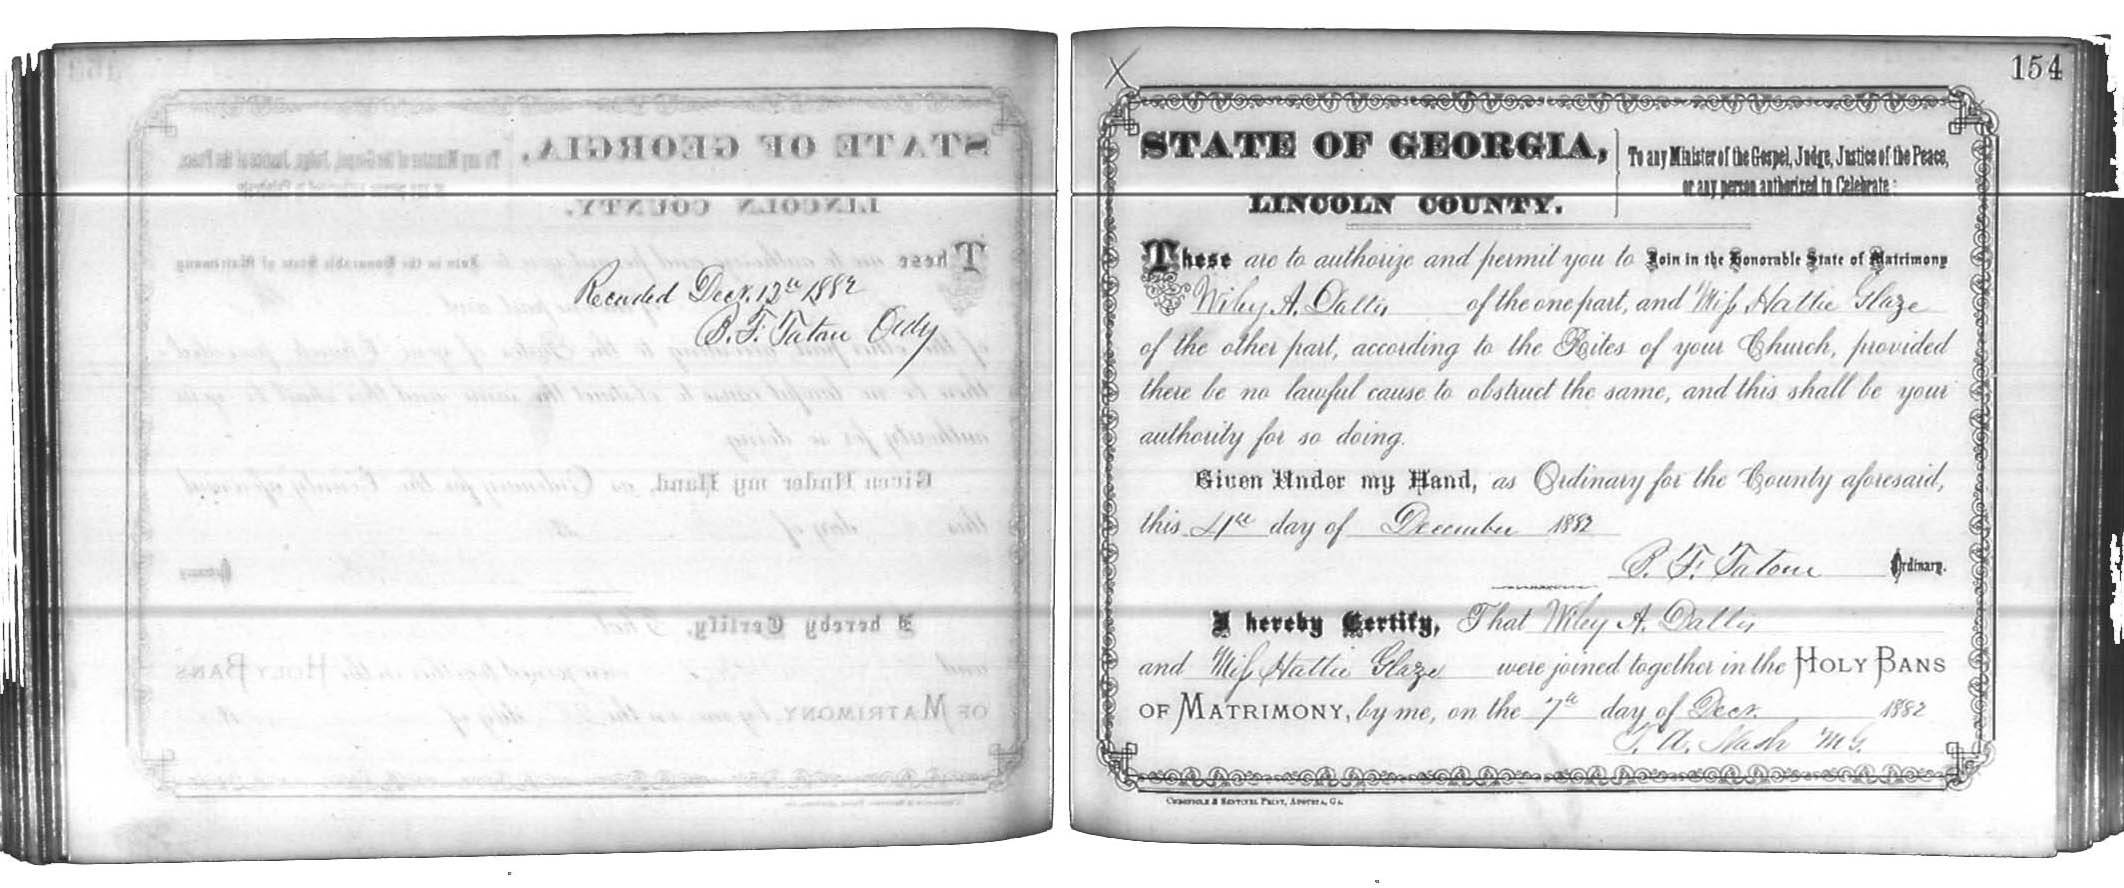 Recorded Decr. 12th 1882
B. F. Tatom Ordy
154
X
STATE OF GEORGIA,
LINCOLN COUNTY.
To any Minister of the Gospel, Judge, Justice of the Peace,
or any person authorized to Celebrate:
These are to authorize and permit you to Join in the Honorable State of Matrimony
Wiley A. Dallis of the one part, and Miss Hattie Glaze
of the other part, according to the Rites of your Church, provided
there be no lawful cause to obstruct the same, and this shall be your
authority for so doing.
Given Under my Hand, as Ordinary for the County aforesaid,
this 4th day of December 1882
B. F. Tatom Ordinary.
I hereby Certify, That Wiley A. Dallis
and Miss Hattie Glaze were joined together in the HOLY BANS
OF MATRIMONY, by me, on the 7th day of Decr. 1882
T. A. Nash M.G.
CHRONICLE & SENTINEL PRINT, AUGUSTA, GA.